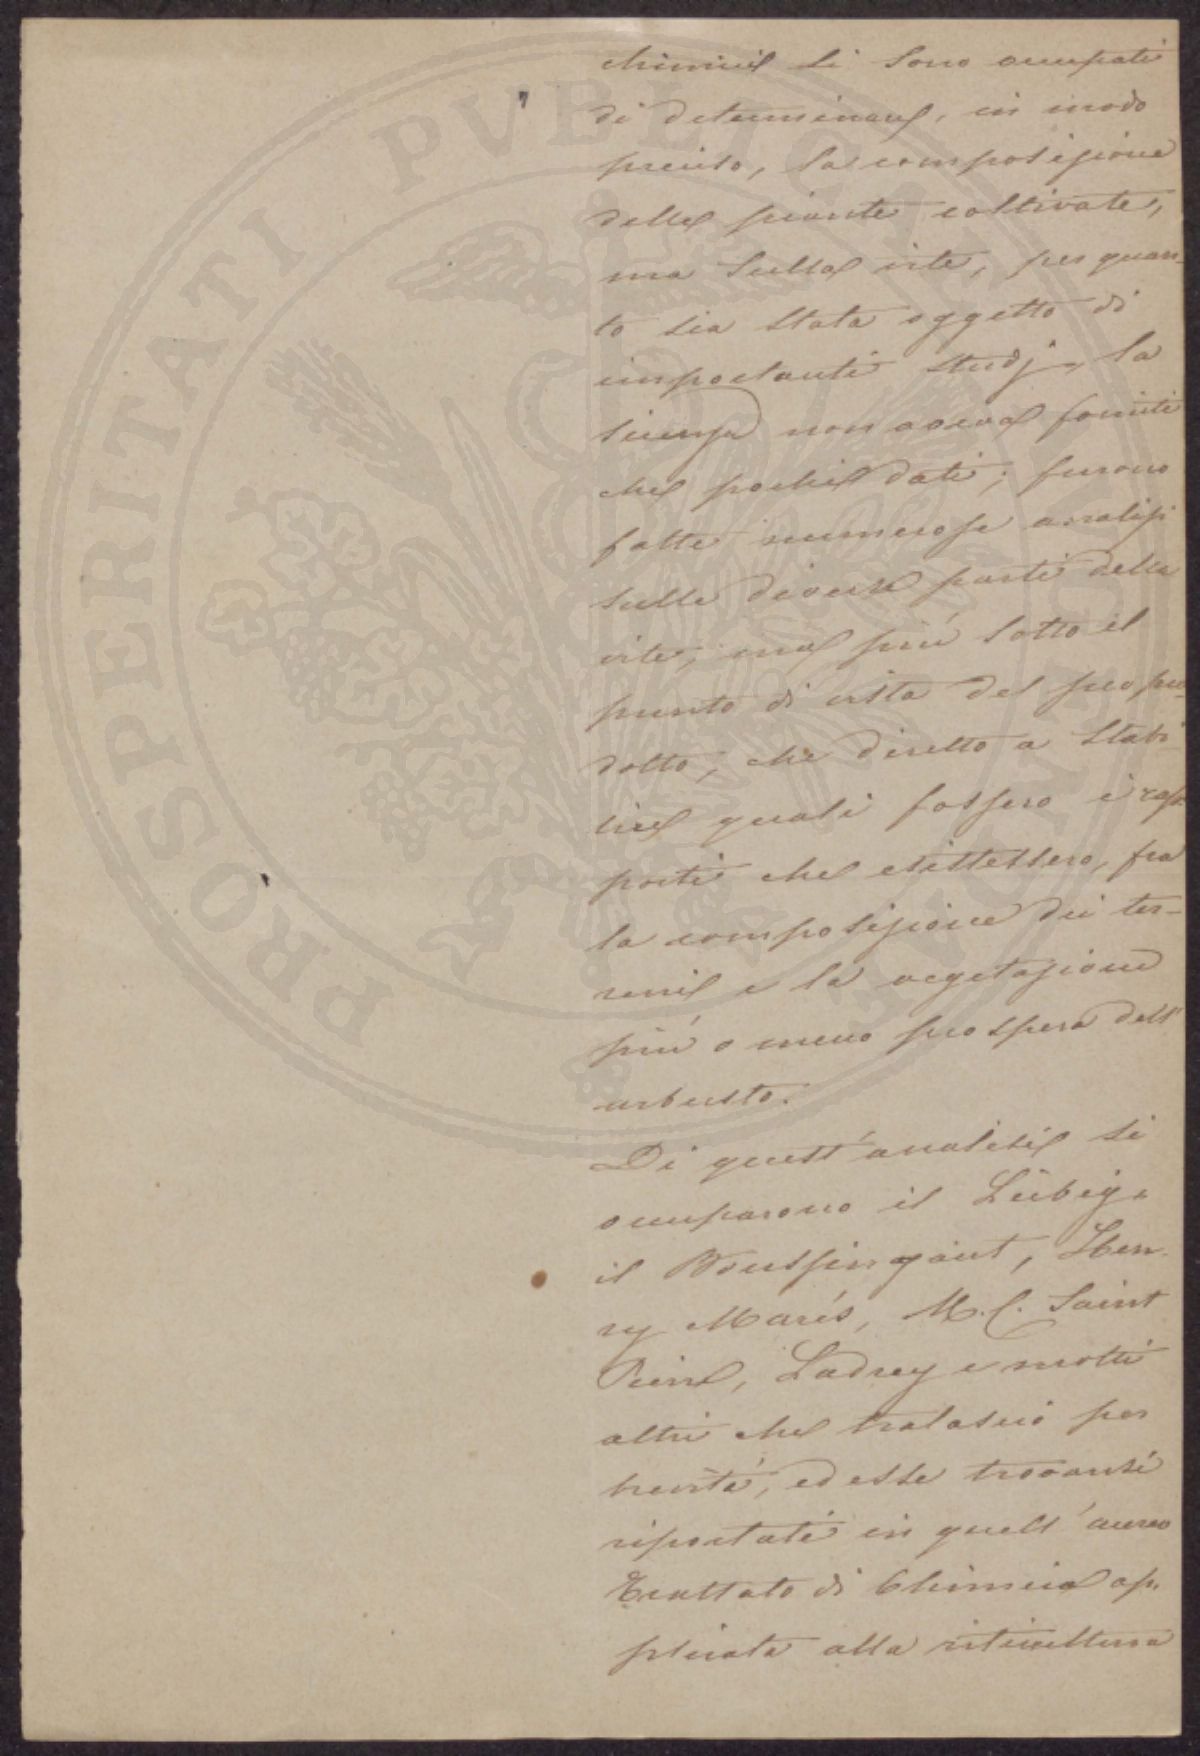 chimici si sono occupati
di determinare, in modo
preciso, la composizione
delle piante coltivate,
ma sulla vite, per quan-
to sia stata oggetto di
importanti studj, la
scienza non aveva forniti
che pochi dati; furono
fatte numerose analisi
sulle diverse parti della
vite, ma più sotto il
punto di vista del pro
dotto, che diretto a stabi
lire quali fossero i rap-
porti che esistessero, fra
la composizione dei ter-
reni e la vegetazione
più o meno prospera dell'
arbusto.
Di quest'analisi si
occuparono il Liebig,
il Boussingaut, Hen-
ry Marés, M. C. Saint
Pierre, Ladrey e molti
altri che tralascio per
brevità, ed esse trovansi
riportati in quell'aureo
Trattato di Chimica ap-
plicata alla viticultura
PROSPERITATI PVBLICAE